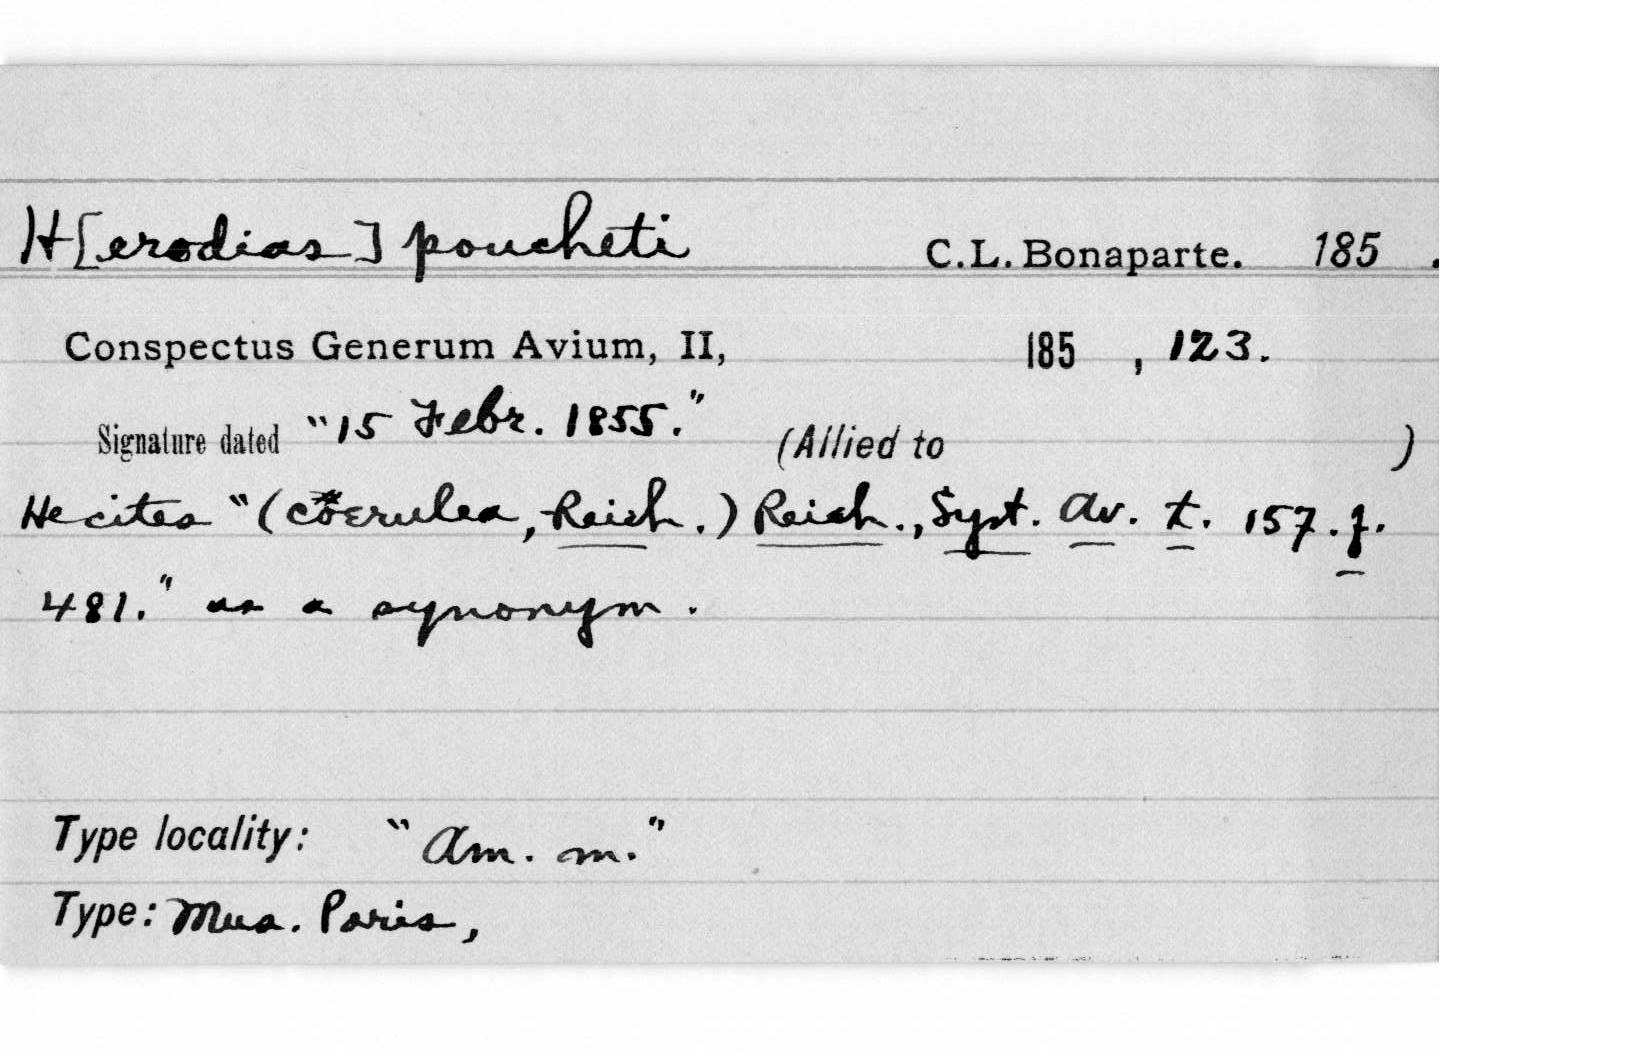 H[erodias] poucheti C.L. Bonaparte. 185 .
Conspectus Generum Avium, II, 185 , 123.
Signature dated "15 Febr. 1855." (Allied to )
He cites "(coerulea, Reich.) Reich., Syst. Av. t. 157. f.
481." as a synonym.
Type locality: "Am. m."
Type: Mus. Paris,